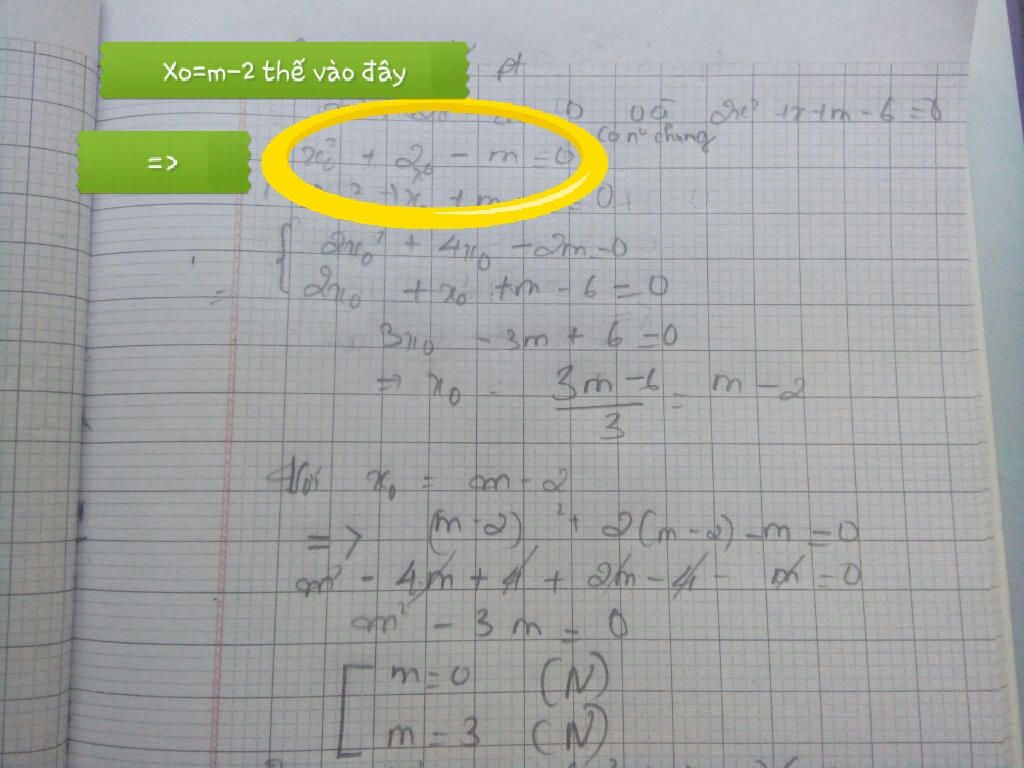 Xo=m-2 thế vào đây
pt
0 và 2x² + x + m - 6 = 0
có n⁰ chung
=>
x₀² + 2x₀ - m = 0
+ x₀ + m = 0
2x₀² + 4x₀ - 2m = 0
2x₀ + x₀ + m - 6 = 0
3x₀ - 3m + 6 = 0
=> x₀ = (3m - 6)/3 = m - 2
Với x₀ = m - 2
=> (m - 2)² + 2(m - 2) - m = 0
m² - 4m + 4 + 2m - 4 - m = 0
m² - 3m = 0
m = 0 (N)
m = 3 (N)